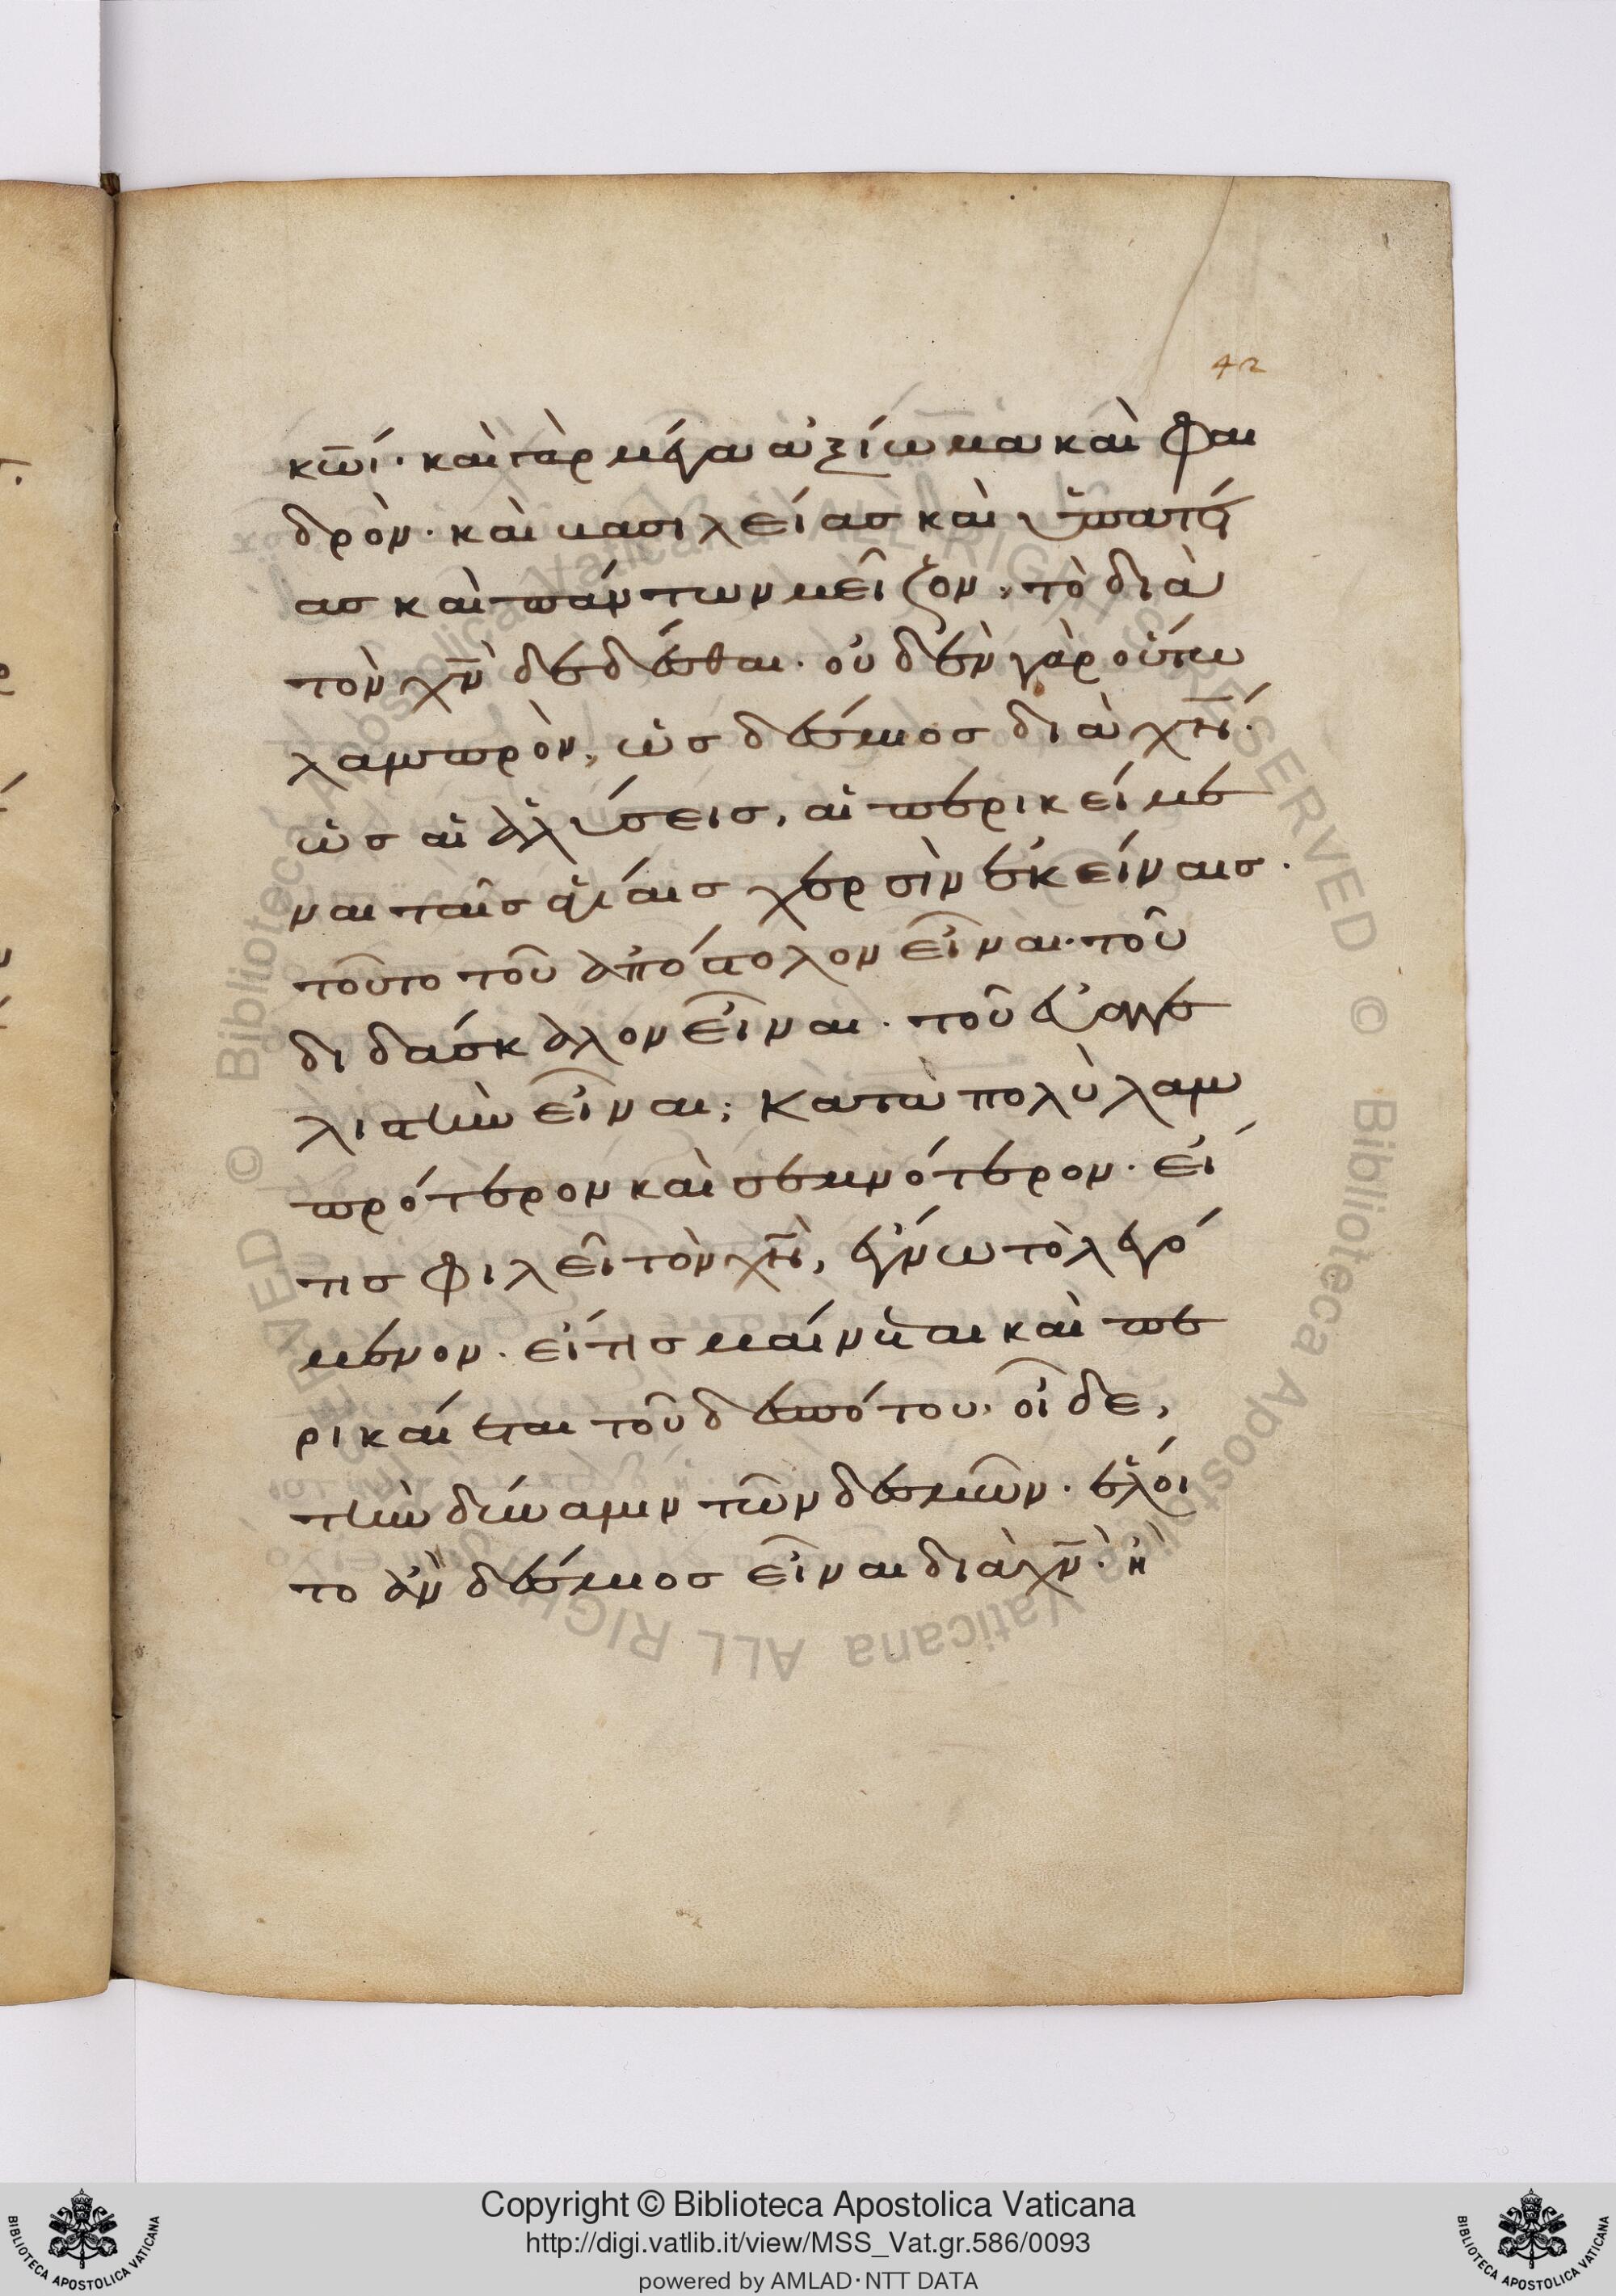 42
κω̅ί· καὶ γὰρ μέγα ἀξίωμα καὶ φαι
δρὸν· καὶ βασιλείασ καὶ ὑπατεί
ασ καὶ πάντων μεῖζον, τὸ διὰ
τὸν χ̅ν̅ δεδέσθαι· οὐδὲν γὰρ οὕτω
λαμπρὸν, ὡσ δέσμοσ διὰ χ̅ν̅·
ὡσ αἱ ἁλύσεισ, αἱ περικείμε
ναι ταῖσ ἁγίαισ χερσὶν ἐκείναισ·
τοῦτο τοῦ ἀπόστολον εἶναι· τοῦ
διδάσκαλον εἶναι· τοῦ εὐαγγε
λιστὴν εἶναι; Κατὰ πολὺ λαμ
πρότερον καὶ σεμνότερον· εἴ
τισ φιλεῖ τὸν χ̅ν̅, ἔγνω τὸ λεγό
μενον· εἴ τισ μαίνεται καὶ πε
ρικαίεται τοῦ δεσπότου· οἶδε,
τὴν δύναμιν τῶν δεσμῶν· ἕλοι
το ἂν δέσμοσ εἶναι διὰ χ̅ν̅· ἢ
Copyright © Biblioteca Apostolica Vaticana
http://digi.vatlib.it/view/MSS_Vat.gr.586/0093
powered by AMLAD·NTT DATA
BIBLIOTECA APOSTOLICA VATICANA
BIBLIOTECA APOSTOLICA VATICANA